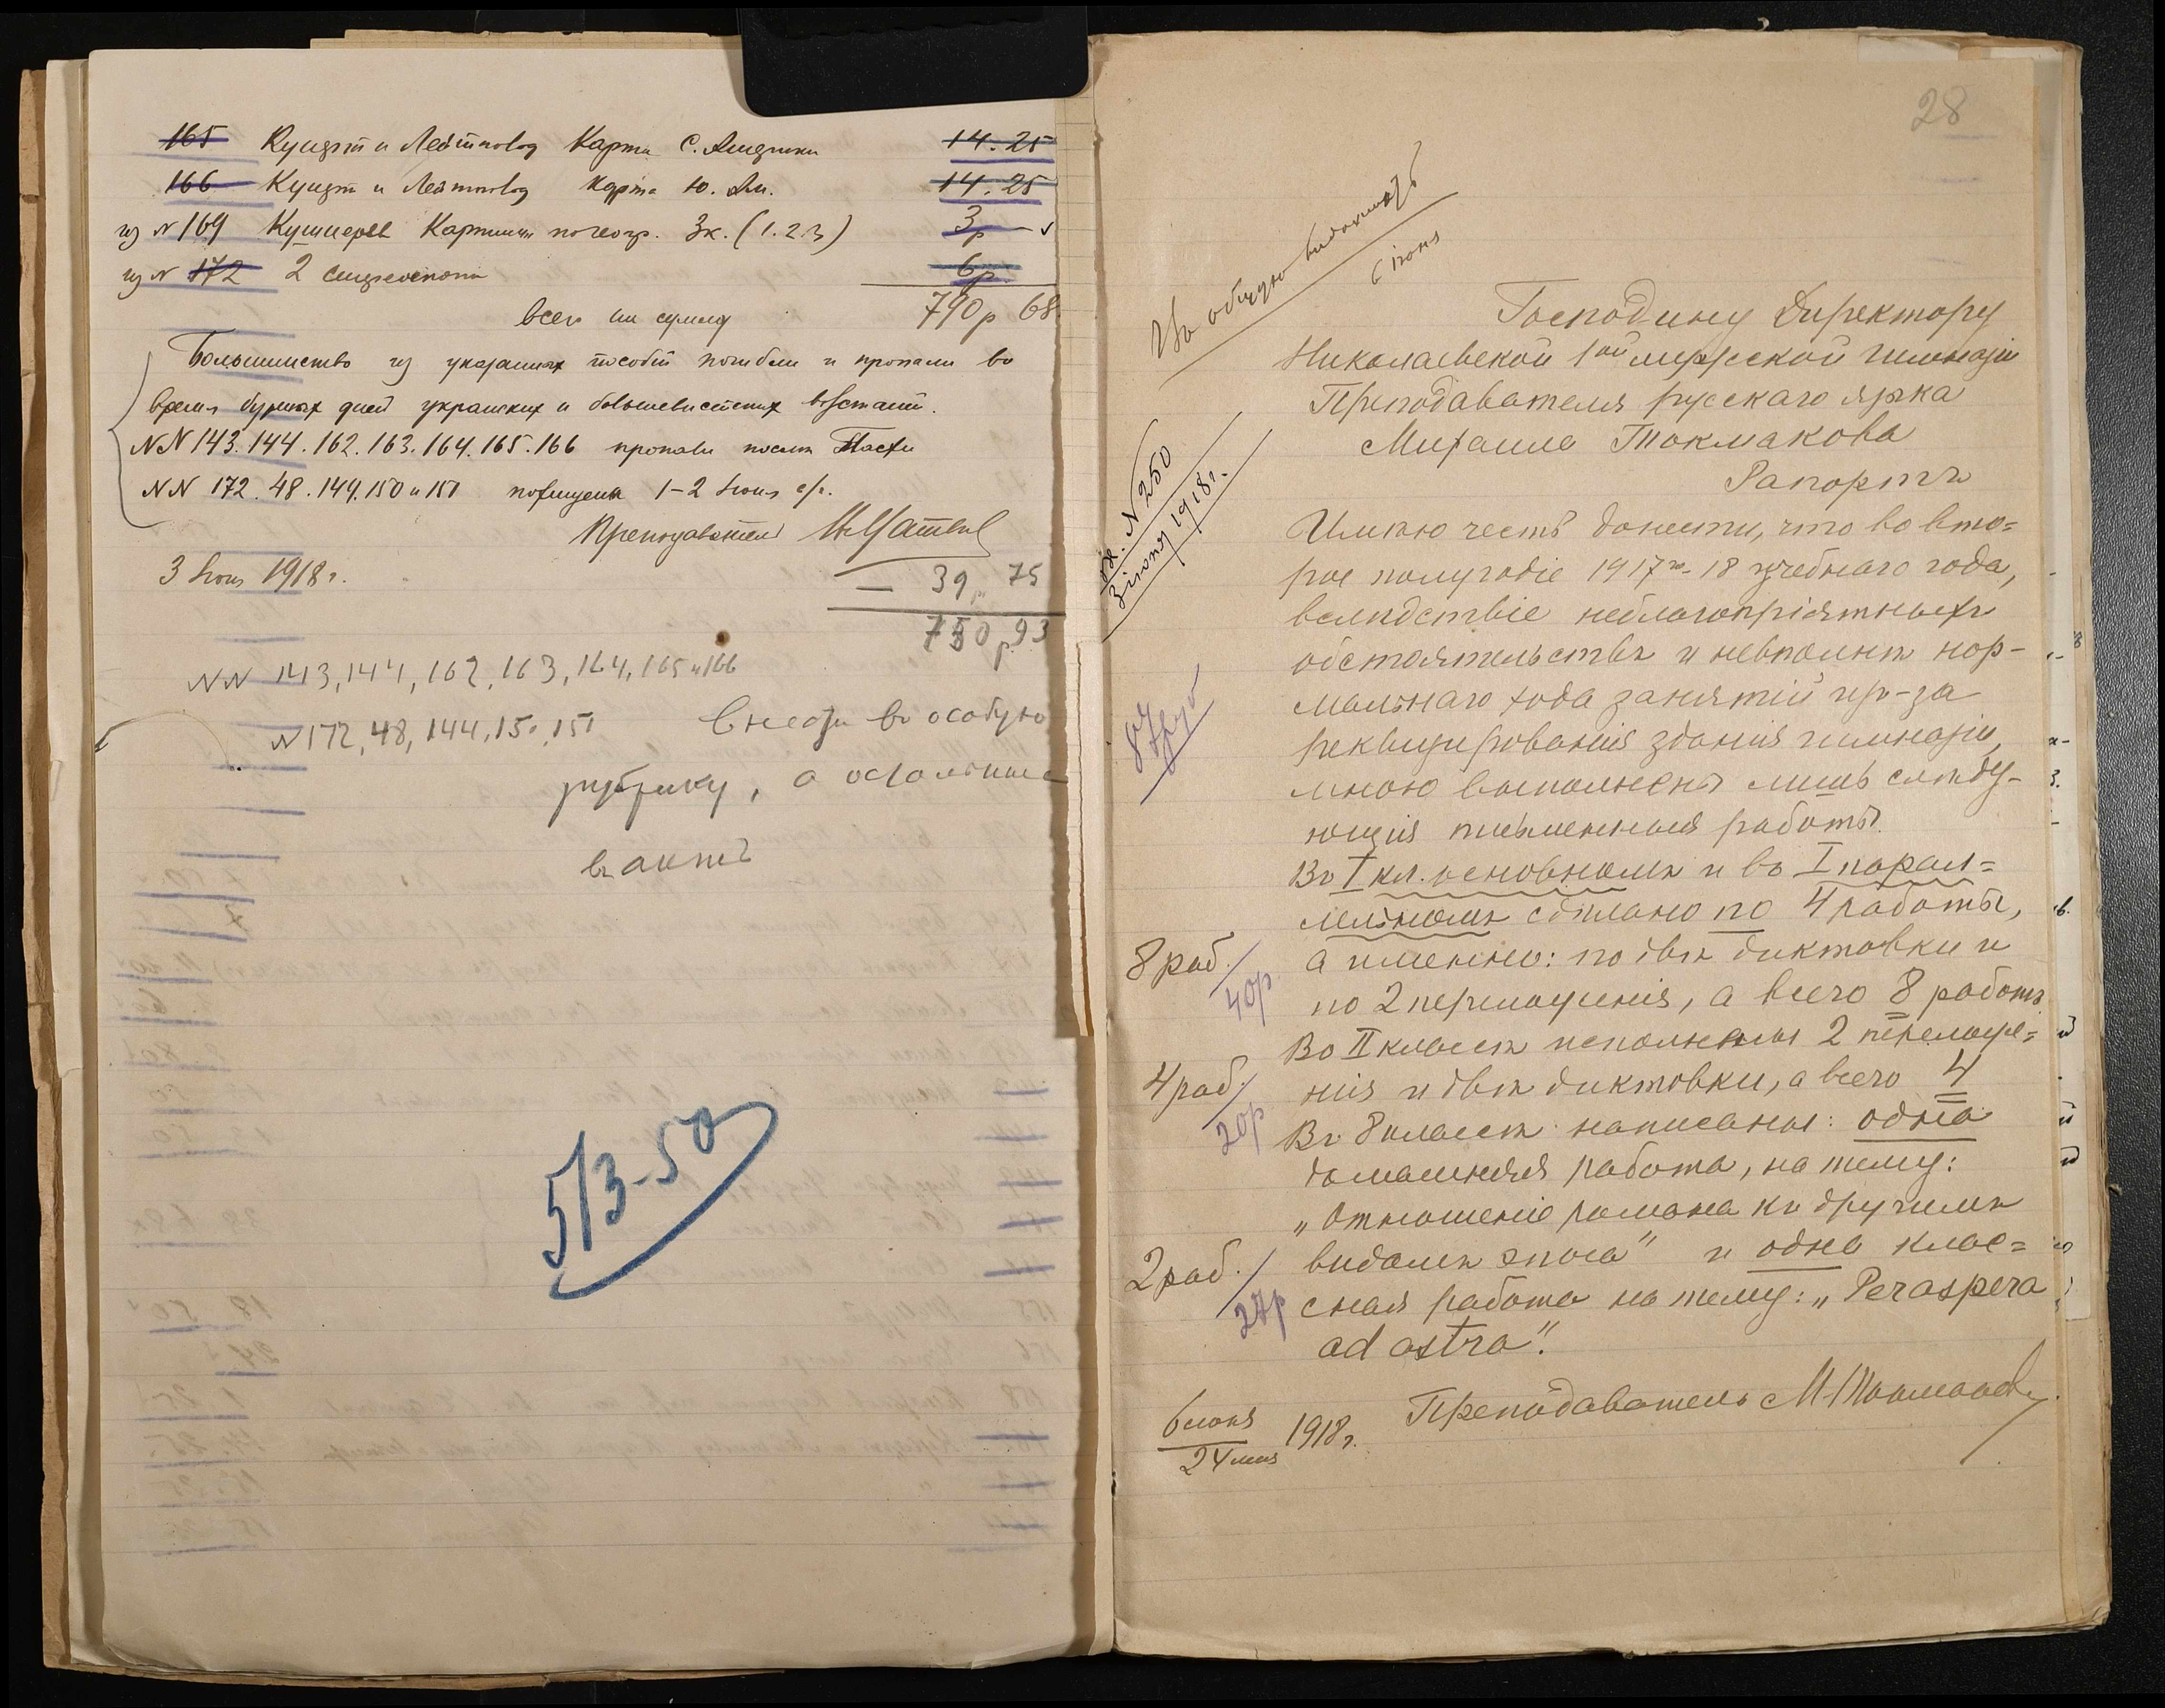 165 Кунцт и Лейтновод Карта С. Америки 14.25
166 Кунцт и Лейтновод Карта Ю. Ам. 14.25
из N 169 Кушнерев Картины по геогр. 3к. (1.2.3) 3р
из N 172 2 2 стереоскопа 6р.
всего на сумму 790р 68
Большинство из указанных пособий погибли и пропали во
время бурных дней украинских и большевистских возстаний.
NN 143.144.162.163.164.165.166 пропали после Пасхи
NN 172.48.149.150 и 151 похищены 1-2 Июня с/г.
Преподаватель
3 Июня 1918 г.
— 39р 75
750р.93
NN 143, 144, 162, 163, 164, 165 и 166
N 172, 48, 144, 150, 151 внести в особую
рубрику, а остальные
въ актъ
513-50
28
Въ общую
6 июня
Вх. N 250
3 июня 1918 г.
Господину Директору
Николаевской 1ой мужской гимназіи
Преподавателя русскаго языка
Михаила Токмакова
Рапортъ
Имѣю честь донести, что во вто=
рое полугодіе 1917го-18 учебнаго года,
вслѣдствіе неблагопріятныхъ
обстоятельствъ и невполнѣ нор-
мальнаго хода занятій из-за
реквизированія зданія гимназіи,
мною выполнены лишь слѣду-
ющія письменныя работы.
Въ I кл. основномъ и въ I парал=
лельномъ сдѣлано по 4 работы,
8 раб. а именно: по двѣ диктовки и
40р по 2 переложенія, а всего 8 работъ
Во II классѣ исполнены 2 переложе=
4 раб. нія и двѣ диктовки, а всего 4
20р Въ 8 классѣ написаны: одна
домашняя работа, на тему:
„Отношеніе романа къ другимъ
2 раб. видамъ эпоса" и одна клас=
27р сная работа на тему: „Per aspera
ad astra".
6 июня
24 мая 1918 г. Преподаватель М. Токмаковъ